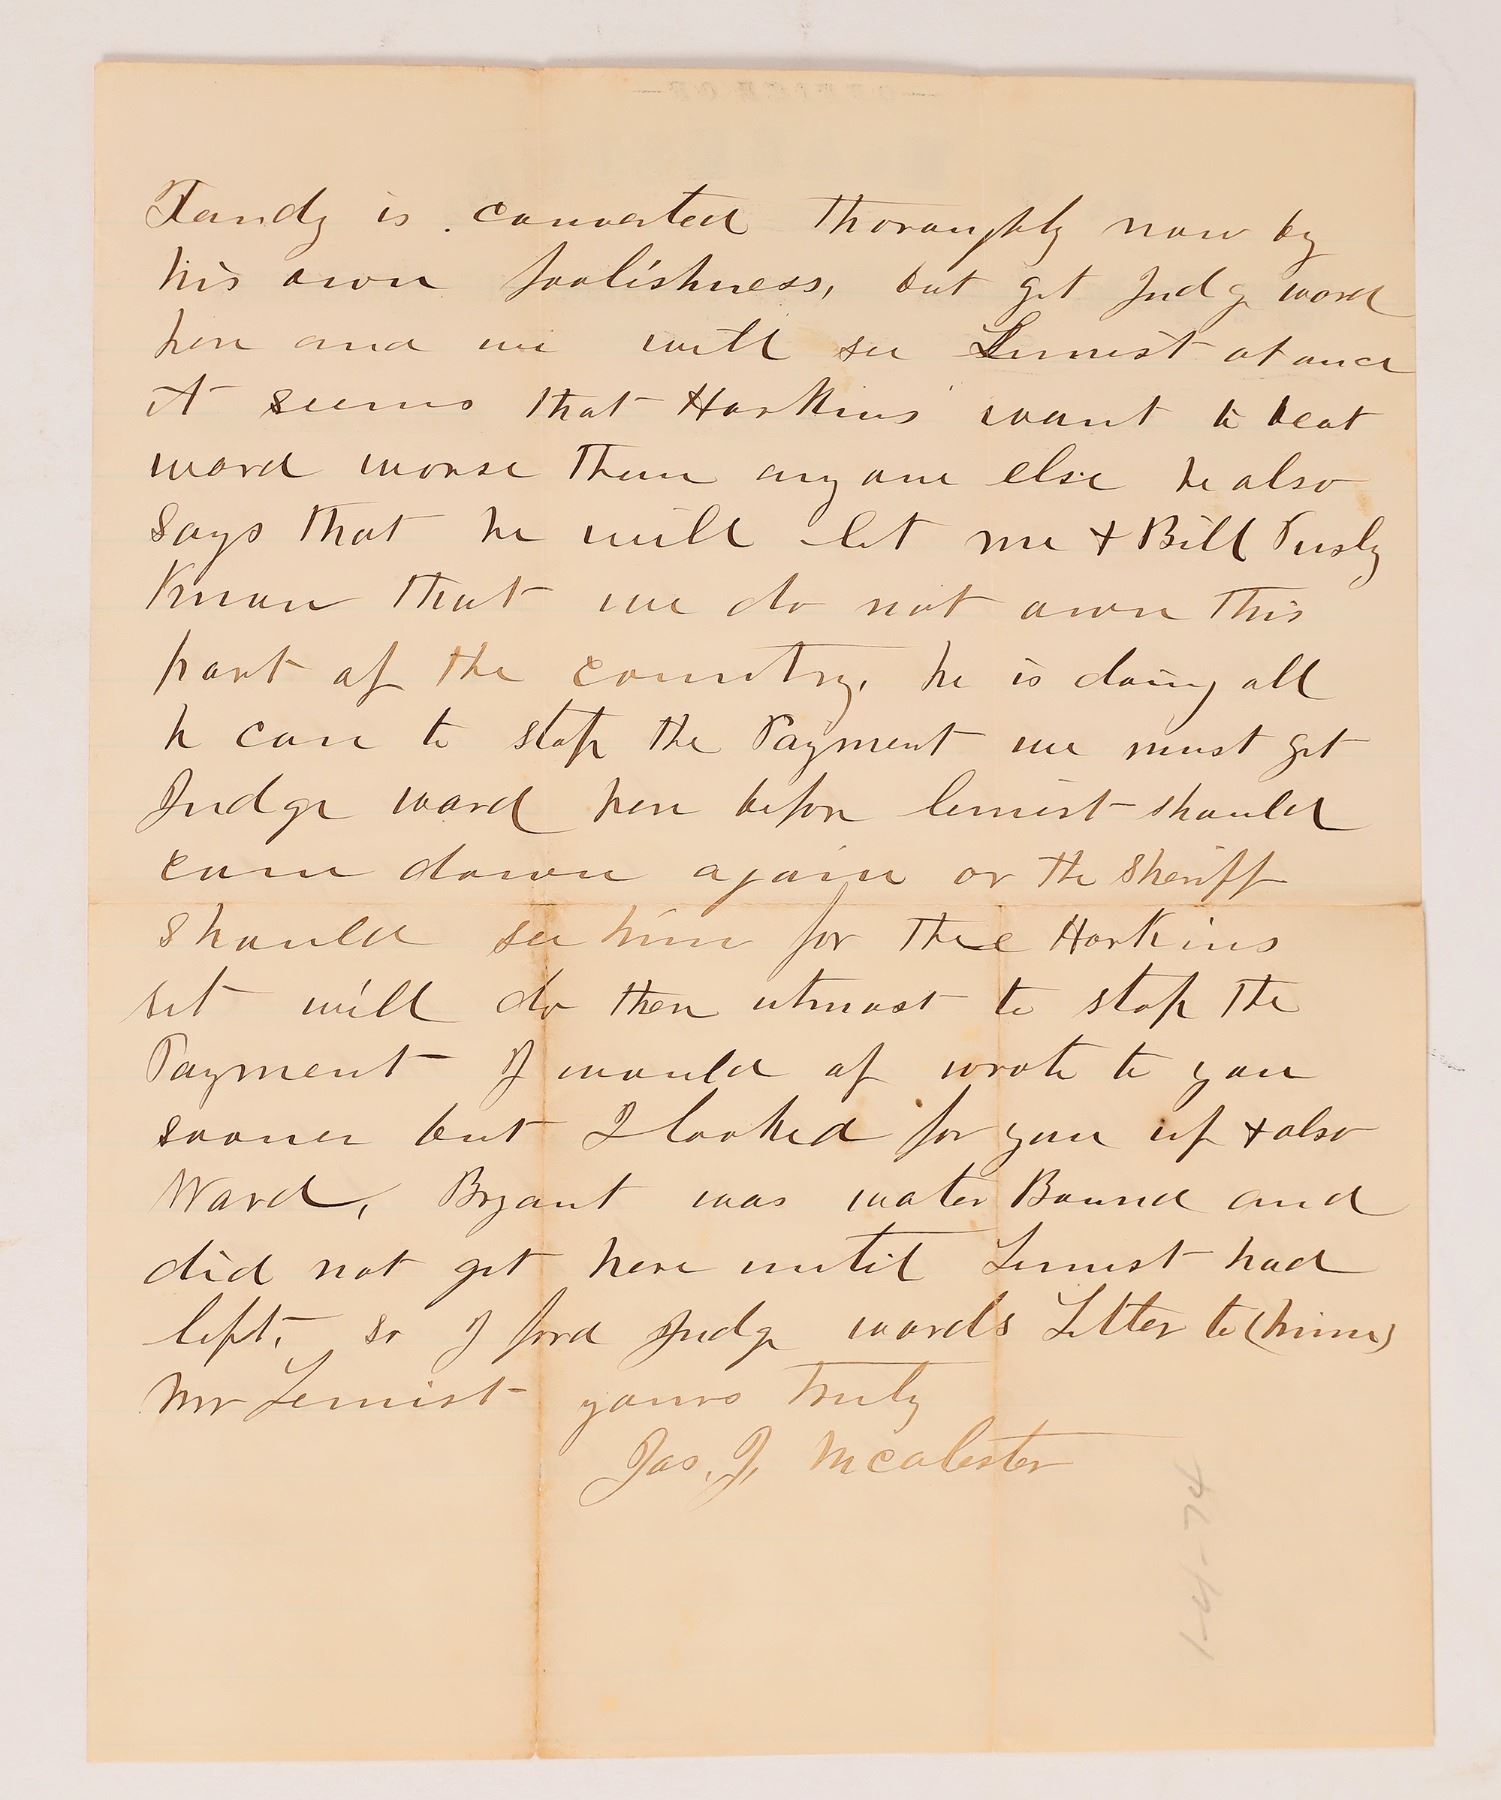 Tandy is converted thoroughly now by
his own foolishness, but get Judge word
here and we will see Lemist at once
it seems that Harkins want to beat
ward worse then anyone else he also
says that he will let me + Bill Pusly
Know that we do not own this
part of the country, he is doing all
he can to stop the Payment we must get
Judge ward here before lemist should
come down again or the Sheriff
should see him for thee Harkins
set will do then utmost to stop the
Payment I would of wrote to you
sooner but I looked for you up + also
Ward, Bryant was water Bound and
did not get here until Lemist had
left, so I ford Judge wards Letter to (him)
Mr Lemist yours truly
Jas. J, McAlester
1-4-74